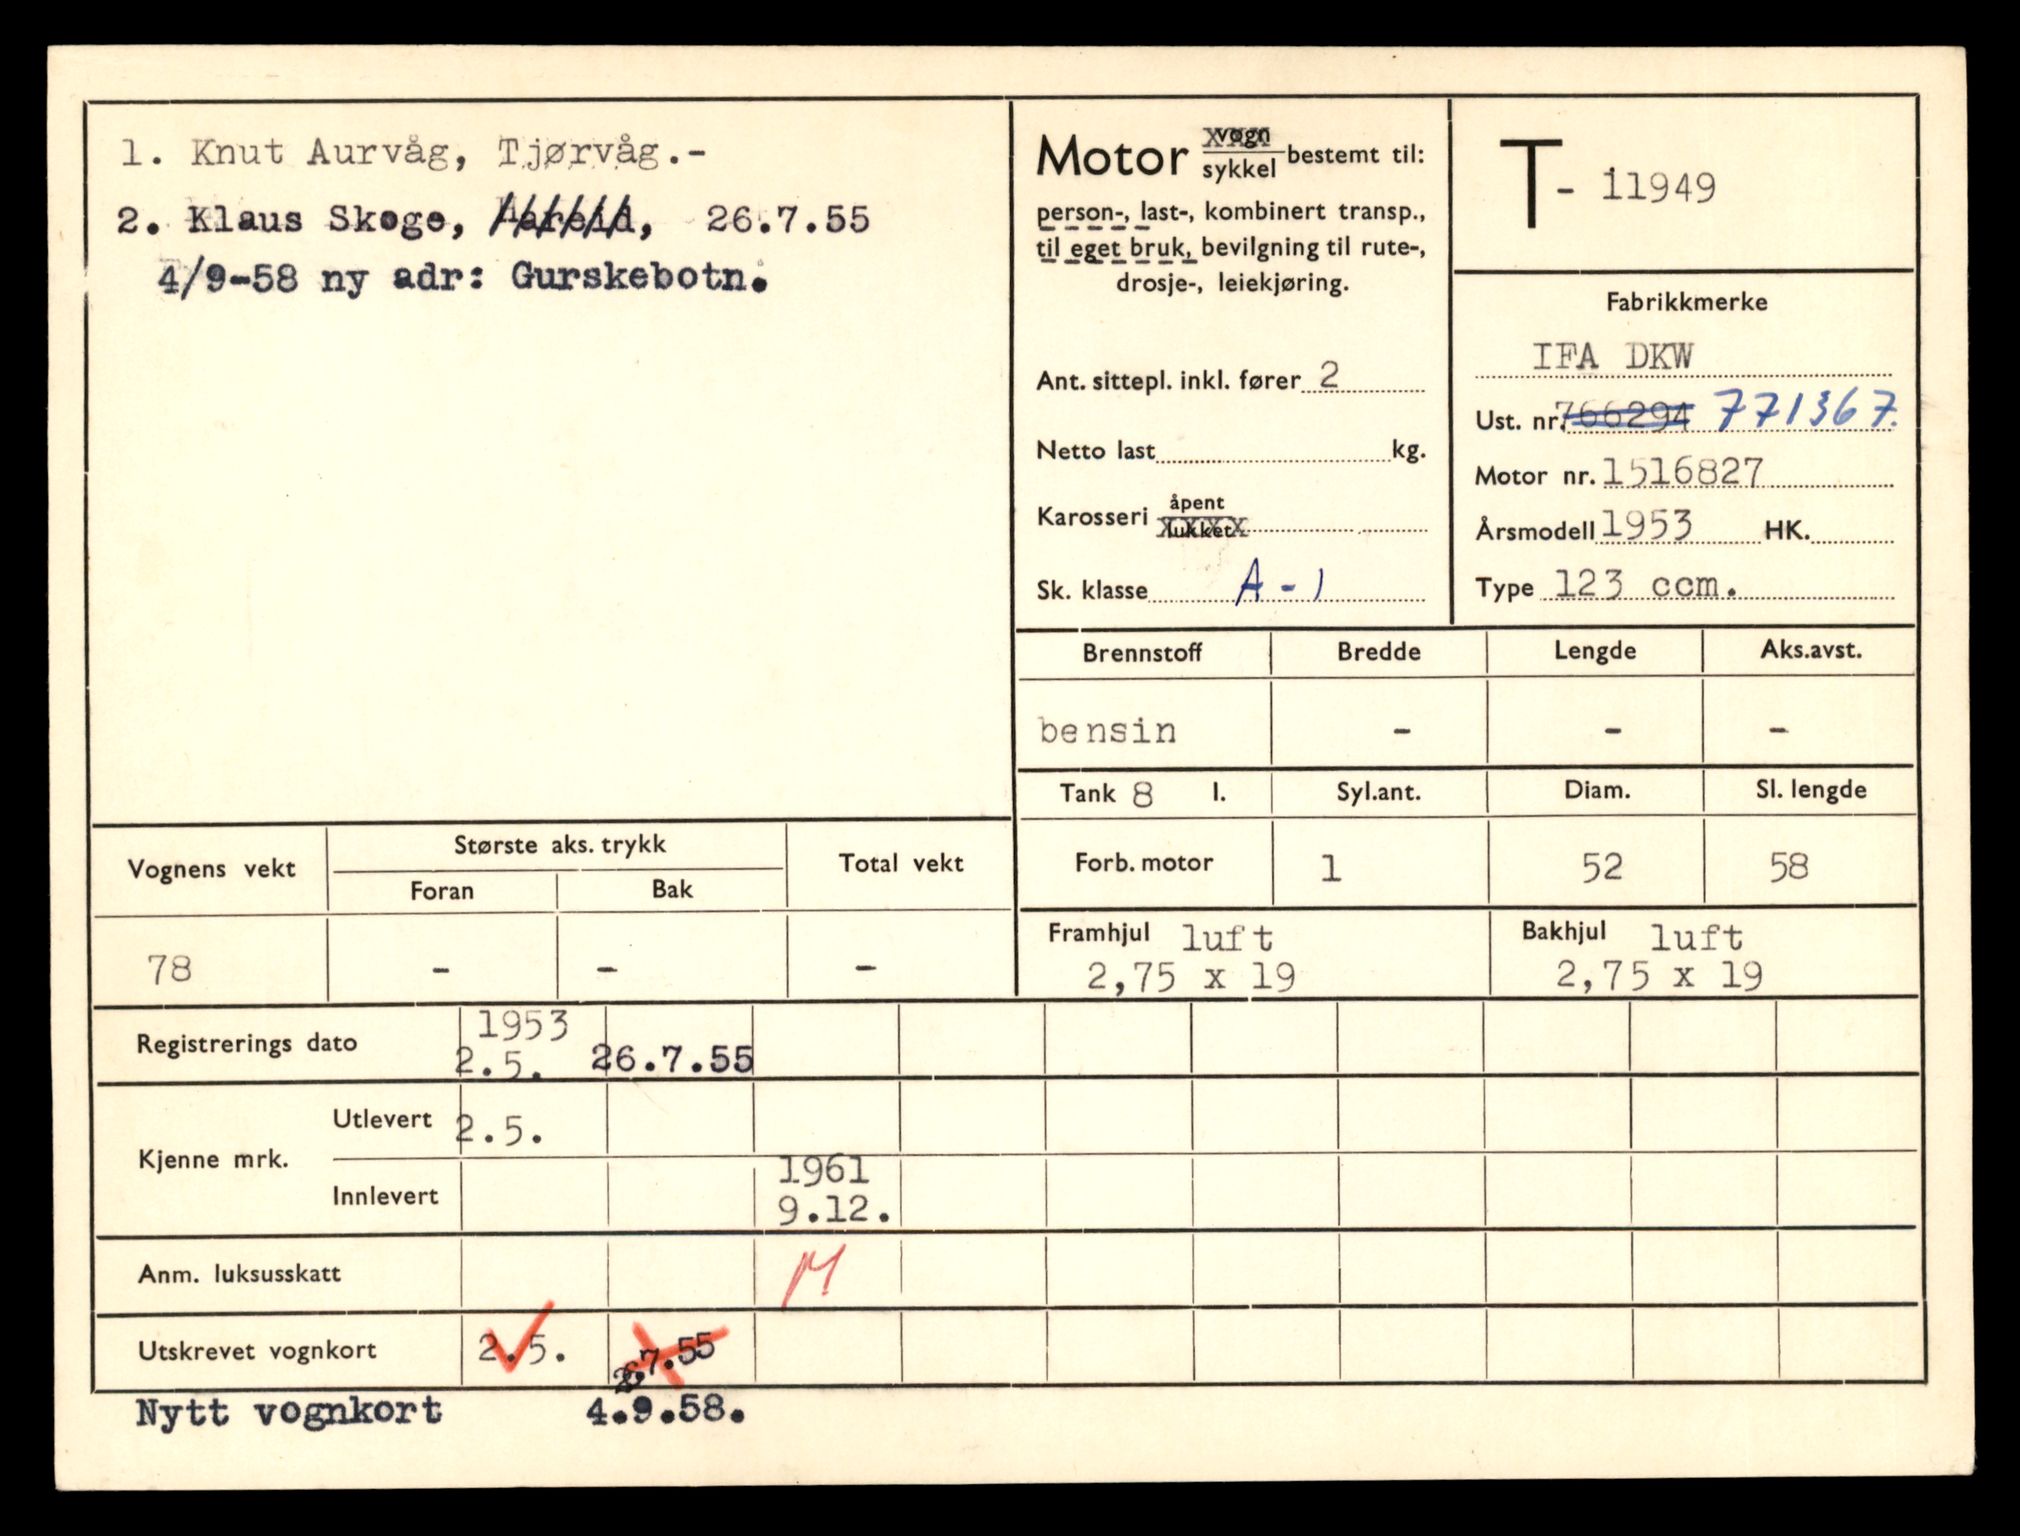 1. Knut Aurvåg, Tjørvåg.-
2. Klaus Skoge, Hareid, 26.7.55
4/9-58 ny adr: Gurskebotn.
Motor vogn
sykkel bestemt til:
person-, last-, kombinert transp.,
til eget bruk, bevilgning til rute-,
drosje-, leiekjøring.
Ant. sittepl. inkl. fører 2
Netto last kg.
Karosseri åpent
lukket
Sk. klasse A-1
T- 11949
Fabrikkmerke
IFA DKW
Ust. nr. 766294 771367.
Motor nr. 1516827
Årsmodell 1953 HK.
Type 123 ccm.
Brennstoff Bredde Lengde Aks.avst.
bensin - - -
Tank 8 l. Syl.ant. Diam. Sl. lengde
Forb. motor 1 52 58
Framhjul luft Bakhjul luft
2,75 x 19 2,75 x 19
Vognens vekt Største aks. trykk Total vekt
Foran Bak
78 - - -
Registrerings dato 1953
2.5. 26.7.55
Kjenne mrk. Utlevert 2.5.
Innlevert 1961
9.12.
Anm. luksusskatt M
Utskrevet vognkort 2.5. 26.7.55
Nytt vognkort 4.9.58.